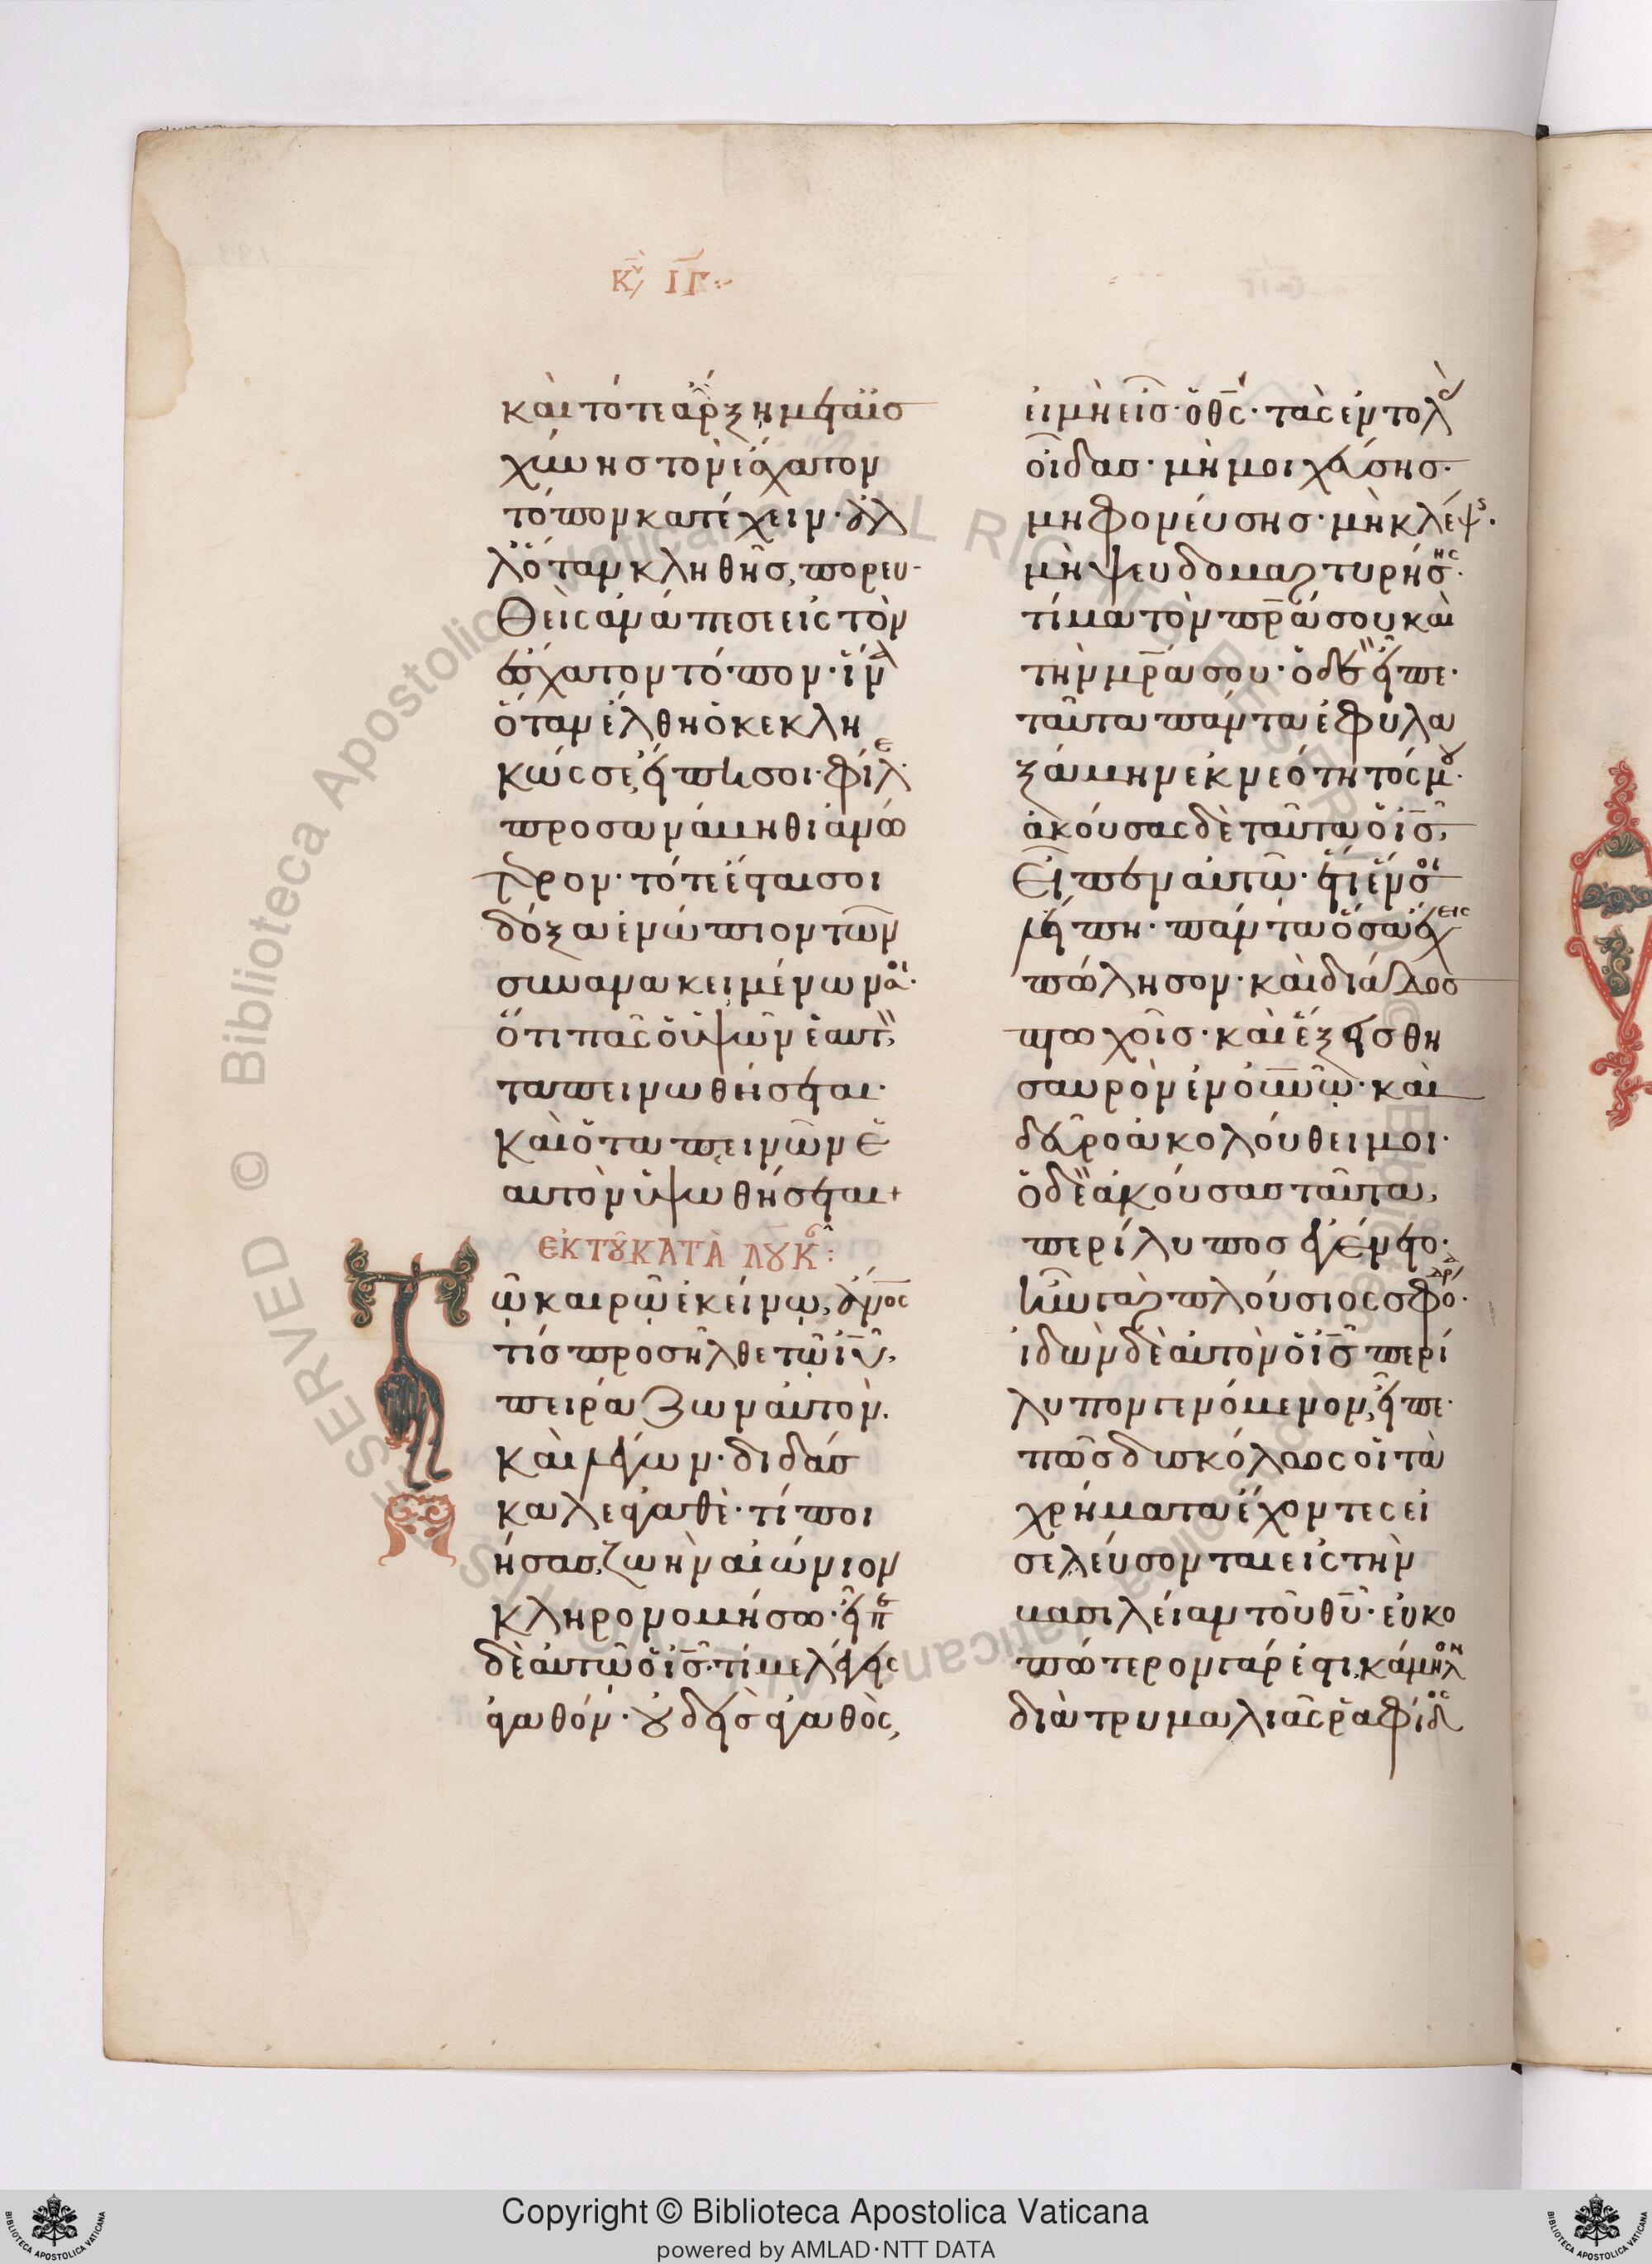 Κυ ΙΓ
καὶ τότε ἄρξη μετ' αἰσ
χύνησ τὸν ἔσχατον
τόπον κατέχειν· ἀλ
λ' ὅταν κληθῆσ, πορευ
θεὶς ἀνάπεσε εἰς τὸν
ἔσχατον τόπον· ἵνα
ὅταν ἔλθη ὁ κεκλη
κώς σε, εἴπη σοι· φίλε
προσανάβηθι ἀνώ
τερον· τότε ἔσται σοι
δόξα ἐνώπιον τῶν
συνανακειμένων σοι·
ὅτι πᾶς ὁ ὑψῶν ἑαυτὸν,
ταπεινωθήσεται·
καὶ ὁ ταπεινῶν ἑ
αυτὸν ὑψωθήσεται+
ἐκ τοῦ κατὰ Λουκᾶν:
Τῶ καιρῶ ἐκείνω, ἄνος
τίσ προσῆλθε τῶ ἰυ,
πειράζων αὐτὸν.
καὶ λέγων· διδάσ
καλε ἀγαθὲ· τί ποι
ήσασ, ζωὴν αἰώνιον
κληρονομήσω· εἶπε
δὲ αὐτῶ ὁ ισ· τί με λέγεις
ἀγαθόν· οὐδεὶσ ἀγαθὸς,
εἰ μὴ εἷσ· ὁ θς· τὰς ἐντολὰς
οἶδασ· μὴ μοιχεύσησ·
μὴ φονεύσησ· μὴ κλέψησ·
μὴ ψευδομαρτυρήσησ·
τίμα τὸν πρα σου καὶ
τὴν μρα σου· ὁ δὲ εἶπε·
ταῦτα πάντα ἐφυλα
ξάμην ἐκ νεότητός μου·
ἀκούσας δὲ ταῦτα ὁ ισ,
εἶπεν αὐτῶ· ἔτι ἕν σοι
λείπη· πάντα ὅσα ἔχεις
πώλησον· καὶ διάδοσ
πτωχοῖσ· καὶ ἕξεισ θη
σαυρὸν ἐν οὐνῶ· καὶ
δεῦρο ἀκολούθει μοι·
ὁ δὲ ἀκούσασ ταῦτα,
περίλυποσ ἐγένετο·
ἦν γὰρ πλούσιος σφόδρα·
ἰδὼν δὲ αὐτὸν ὁ ισ περί
λυπον γενόμενον, εἶπε·
πῶσ δυσκόλως οἱ τὰ
χρήματα ἔχοντες εἰ
σελεύσονται εἰς τὴν
βασιλείαν τοῦ θυ· εὐκο
πώτερον γάρ ἐστι, κάμηλον
διὰ τρυμαλιᾶς ῥαφίδος